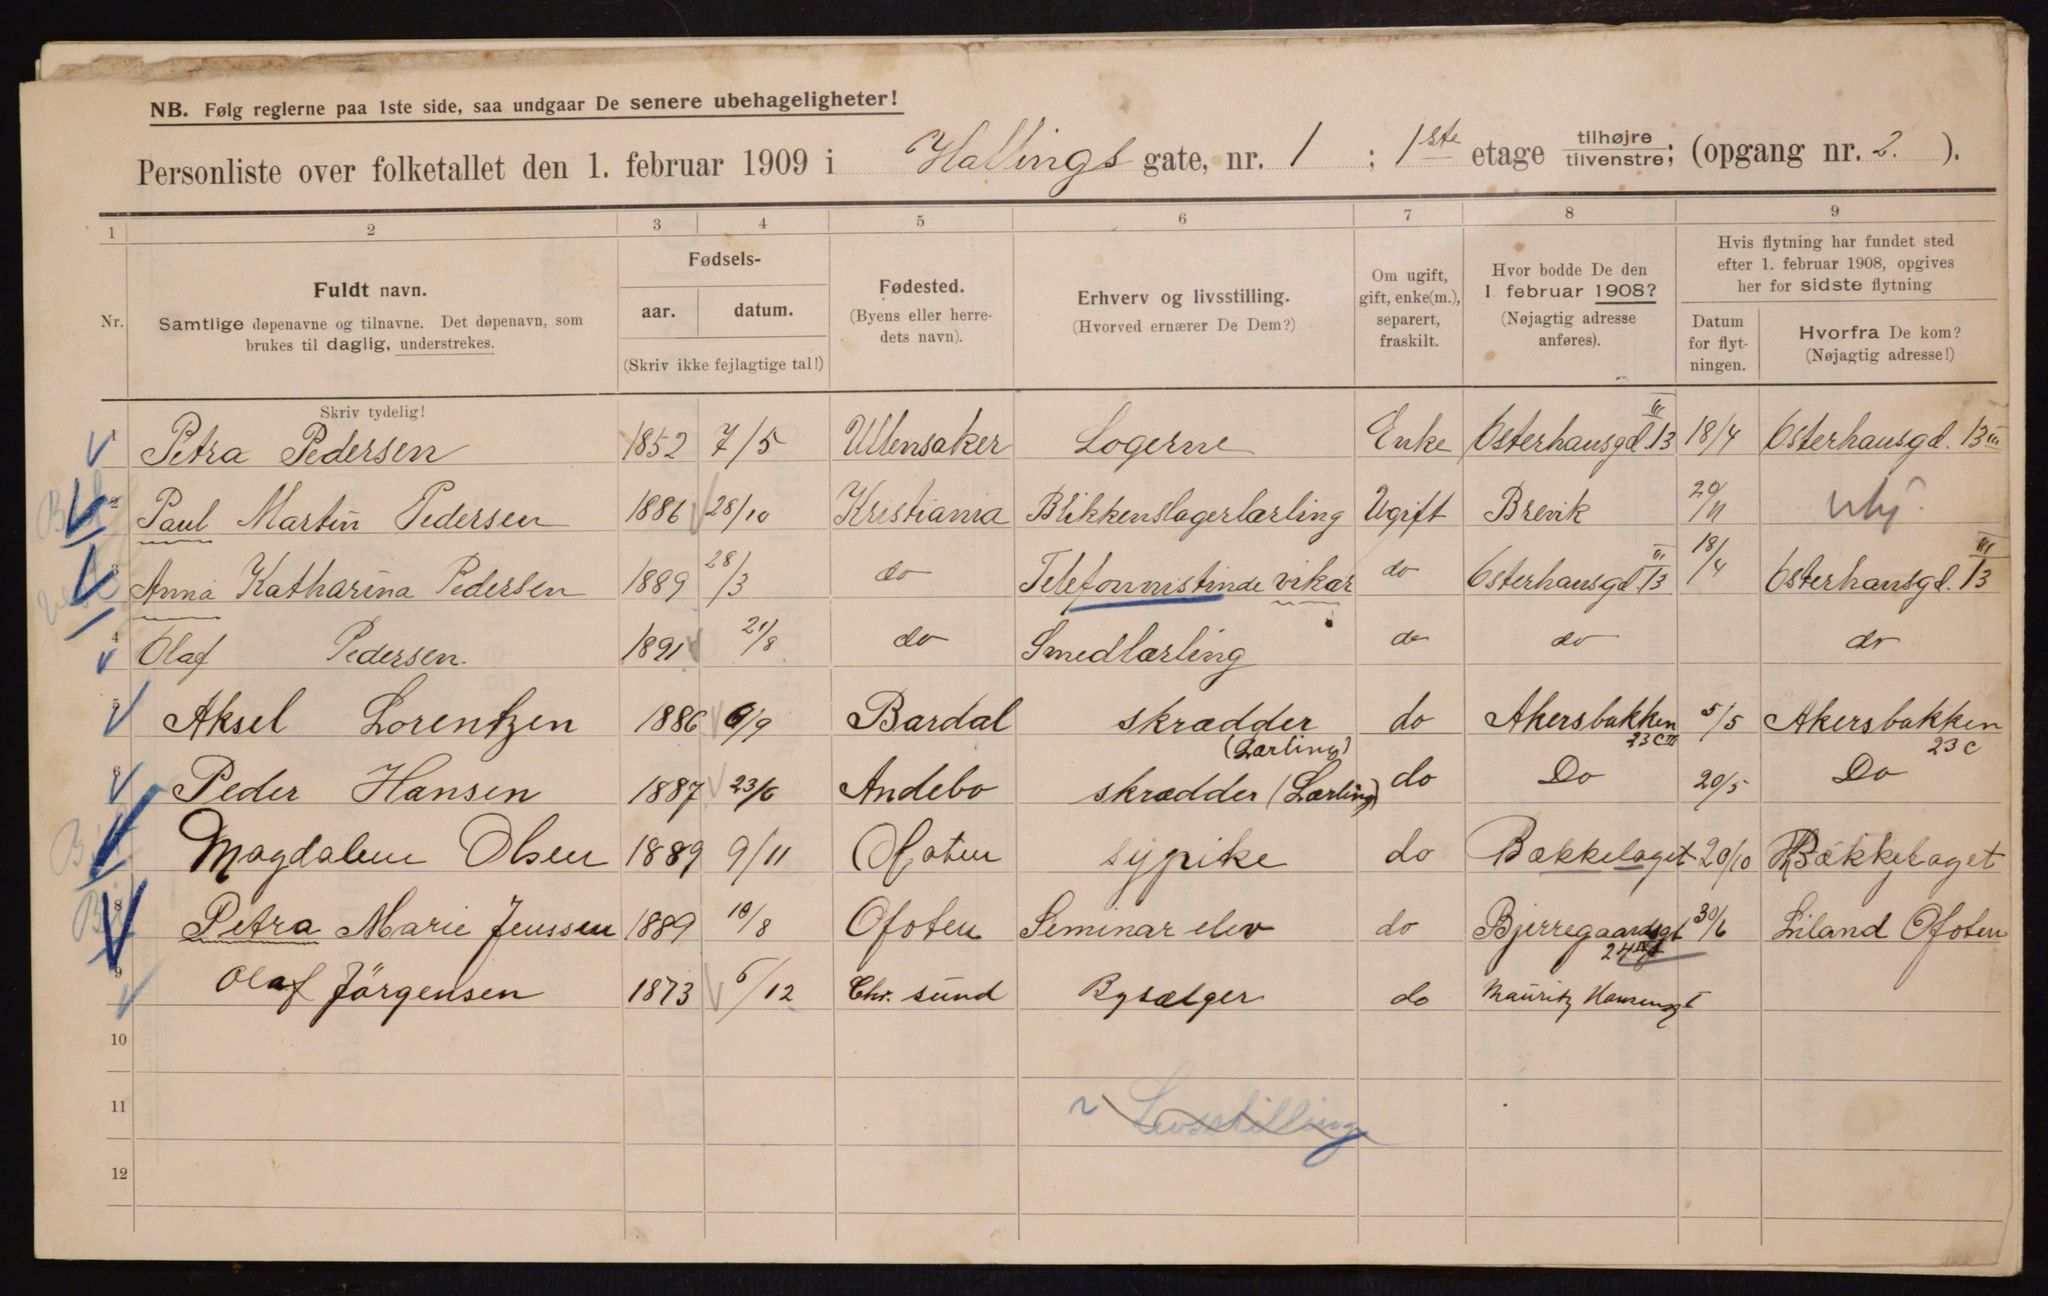 NB. Følg reglerne paa 1ste side, saa undgaar De senere ubehageligheter!
Personliste over folketallet den 1. februar 1909 i Hallings gate, nr. 1 ; 1ste etage tilhøjre/tilvenstre; (opgang nr. 2. ).
1 2 3 4 5 6 7 8 9
Nr.
Fuldt navn.
Samtlige døpenavne og tilnavne. Det døpenavn, som
brukes til daglig, understrekes.
Fødsels-
aar. datum.
(Skriv ikke fejlagtige tal!)
Fødested.
(Byens eller herre-
dets navn).
Erhverv og livsstilling.
(Hvorved ernærer De Dem?)
Om ugift,
gift, enke(m.),
separert,
fraskilt.
Hvor bodde De den
1. februar 1908?
(Nøjagtig adresse
anføres).
Hvis flytning har fundet sted
efter 1. februar 1908, opgives
her for sidste flytning
Datum
for flyt-
ningen.
Hvorfra De kom?
(Nøjagtig adresse!)
Skriv tydelig!
1 Petra Pedersen 1852 7/5 Ullensaker Logerne Enke Osterhausgd. 13 III 18/4 Osterhausgd. 13 III
2 Paul Martin Pedersen 1886 28/10 Kristiania Blikkenslagerlærling Ugift Brevik 20/11
3 Anna Katharina Pedersen 1889 28/3 do Telefonnistinde vikar do Osterhausgd. 13 III 18/4 Osterhausgd. 13 III
4 Olaf Pedersen. 1891 21/8 do Smedlærling do do do
5 Aksel Lorentzen 1886 9/9 Bardal skrædder (Lærling) do Akersbakken 23 C III 5/5 Akersbakken 23 C
6 Peder Hansen 1887 23/6 Andebo skrædder (Lærling) do Do 20/5 Do
Magdalene Olsen 1889 9/11 Ofoten sypike do Bækkelaget 20/10 Bækkelaget
8 Petra Marie Jenssen 1889 10/8 Ofoten Seminar elev do Bjerregaardsgt 24 IV 30/6 Liland Ofoten
9 Olaf Jörgensen 1873 6/12 Chr. sund Bysælger do Mauritz Hansensgt I
10
11 Livsstilling
12